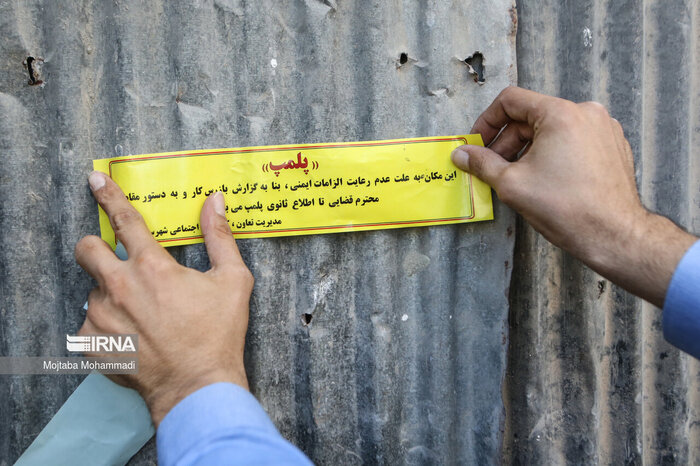 ((پلمپ))
این مکان به علت عدم رعایت الزامات ایمنی ، بنا به گزارش بازرس کار و به دستور
محترم قضایی تا اطلاع ثانوی پلمپ می
مدیریت تعاون ، اجتماعی
IRNA
Mojtaba Mohammadi